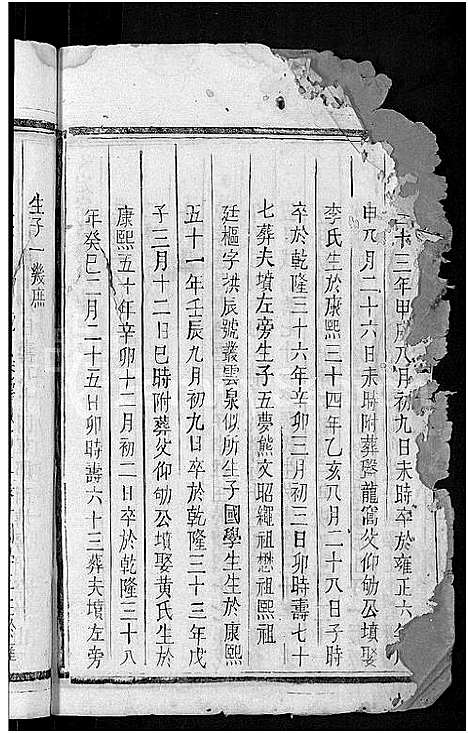 三十三年甲戌八月初九日未時卒於雍正六年
申八月二十六日未時附葬磬龍窩父仰劬公墳娶
李氏生於康熙三十四年乙亥八月二十八日子時
卒於乾隆三十六年辛卯三月初三日卯時壽七十
七葬夫墳左旁生子五夢熊文昭繩祖懋祖熙祖
廷樞字拱辰號叢雲泉似所生子國學生生於康熙
五十一年壬辰九月初九日卒於乾隆三十三年戊
子三月十二日巳時附葬父仰劬公墳娶黄氏生於
康熙五十年辛卯十二月初二日卒於乾隆三十八
年癸巳二月二十五日卯時壽六十三葬夫墳左旁
生子一㡬庶